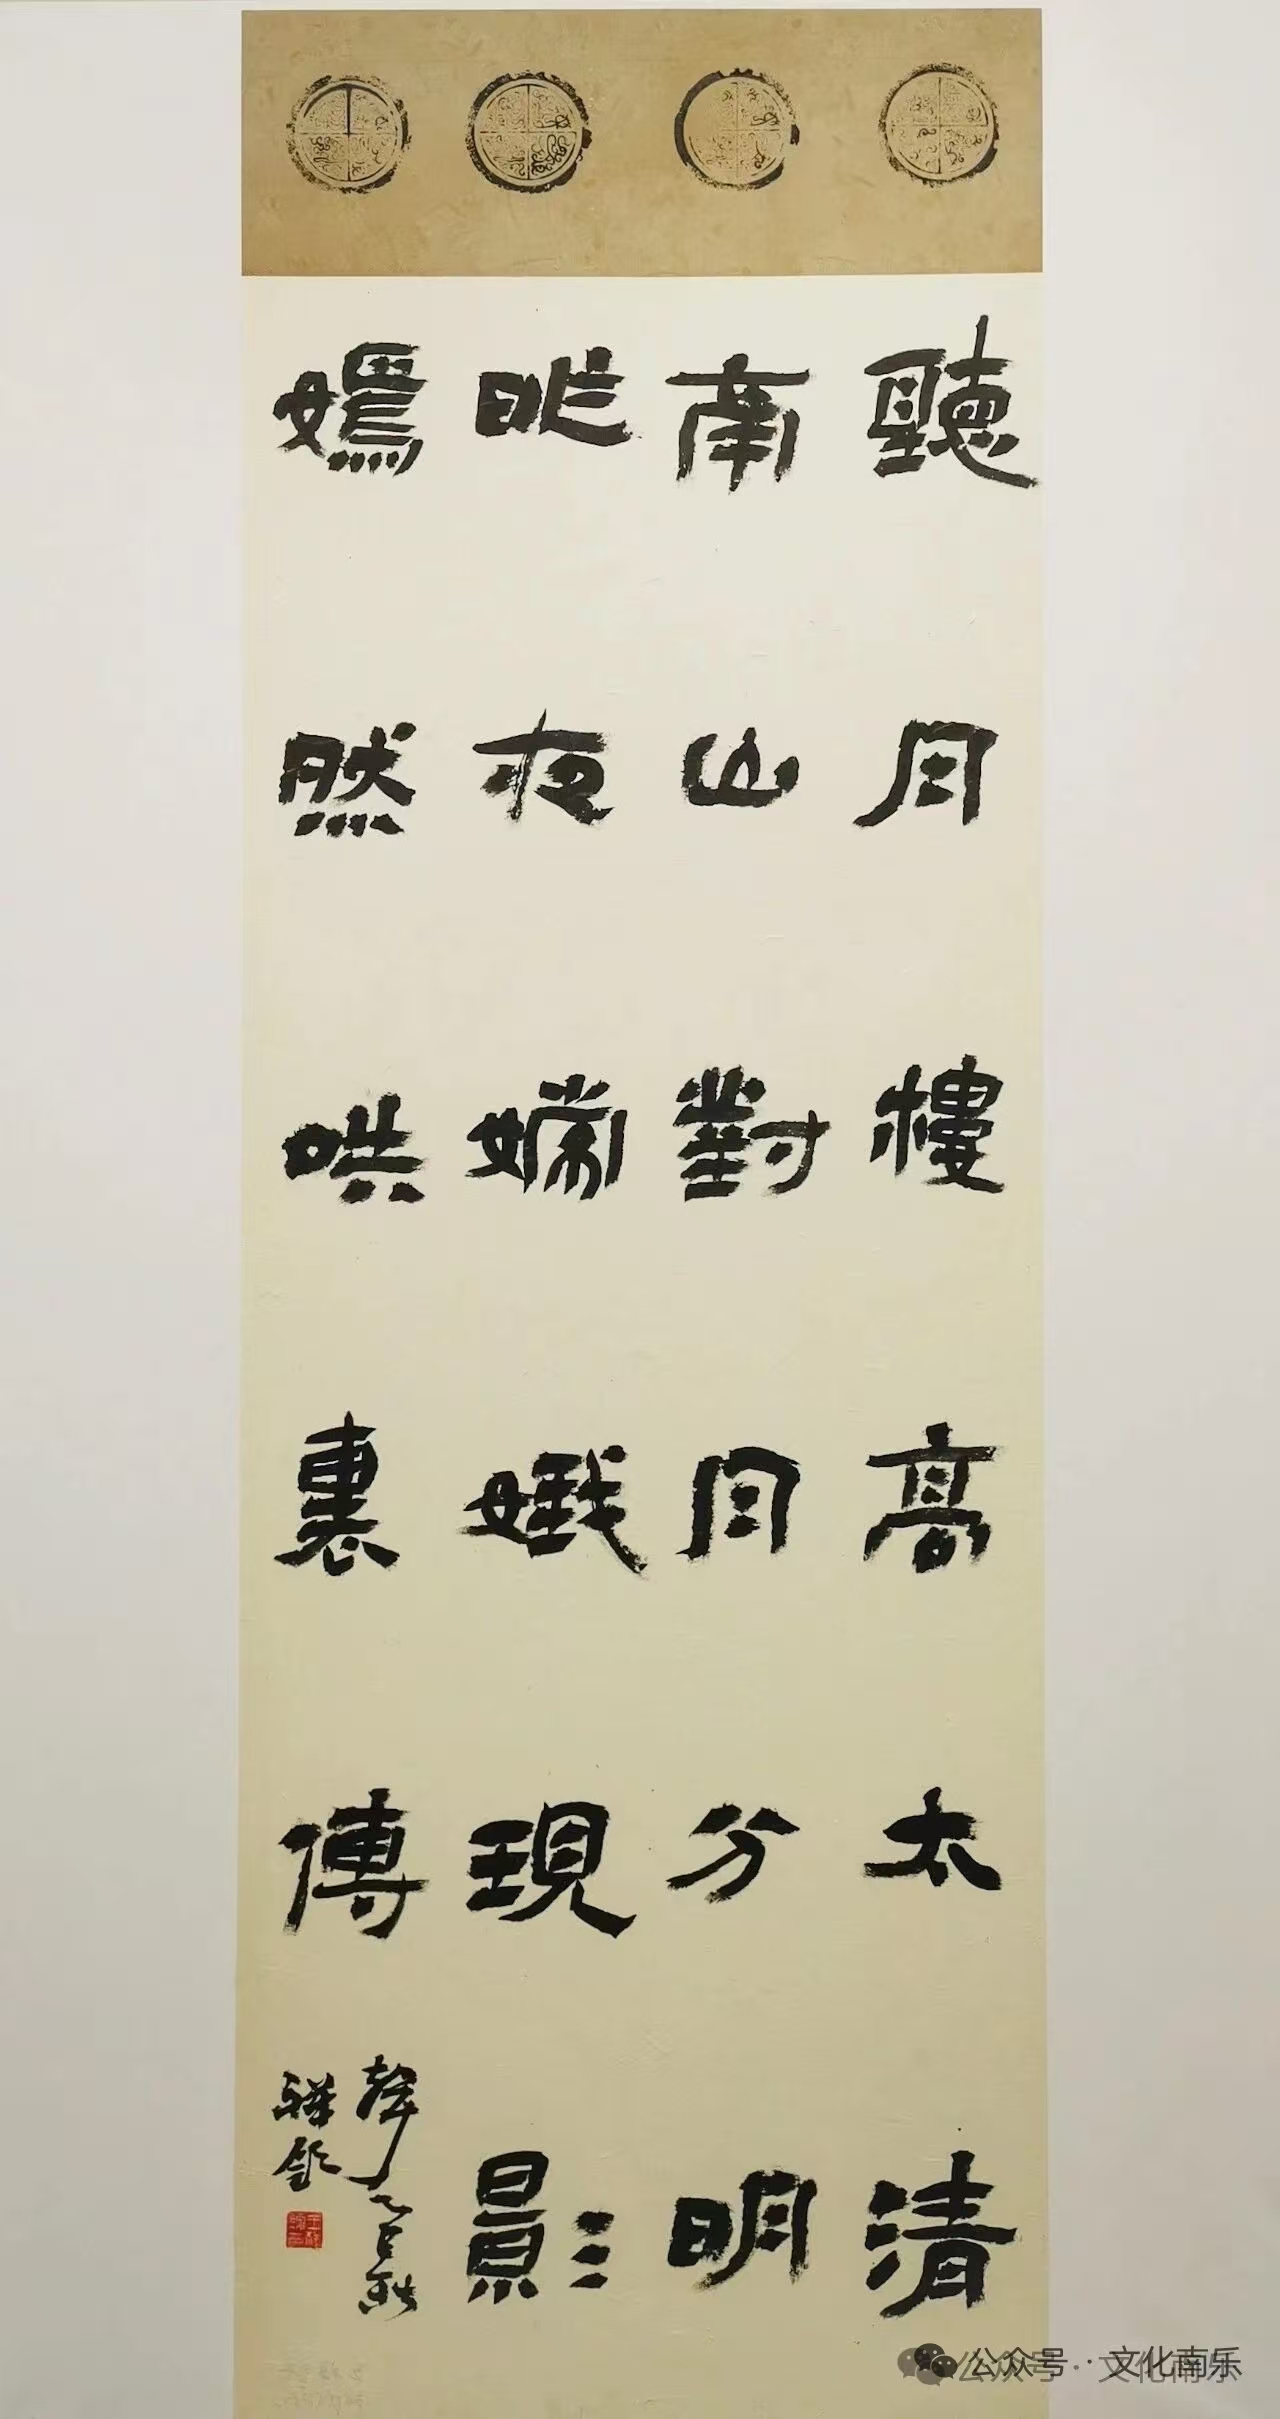 聽月樓高太清
南山對月分明
昨夜嫦娥現影
嫣然哄裏傳
聲乙巳秋
公众号 · 文化南乐